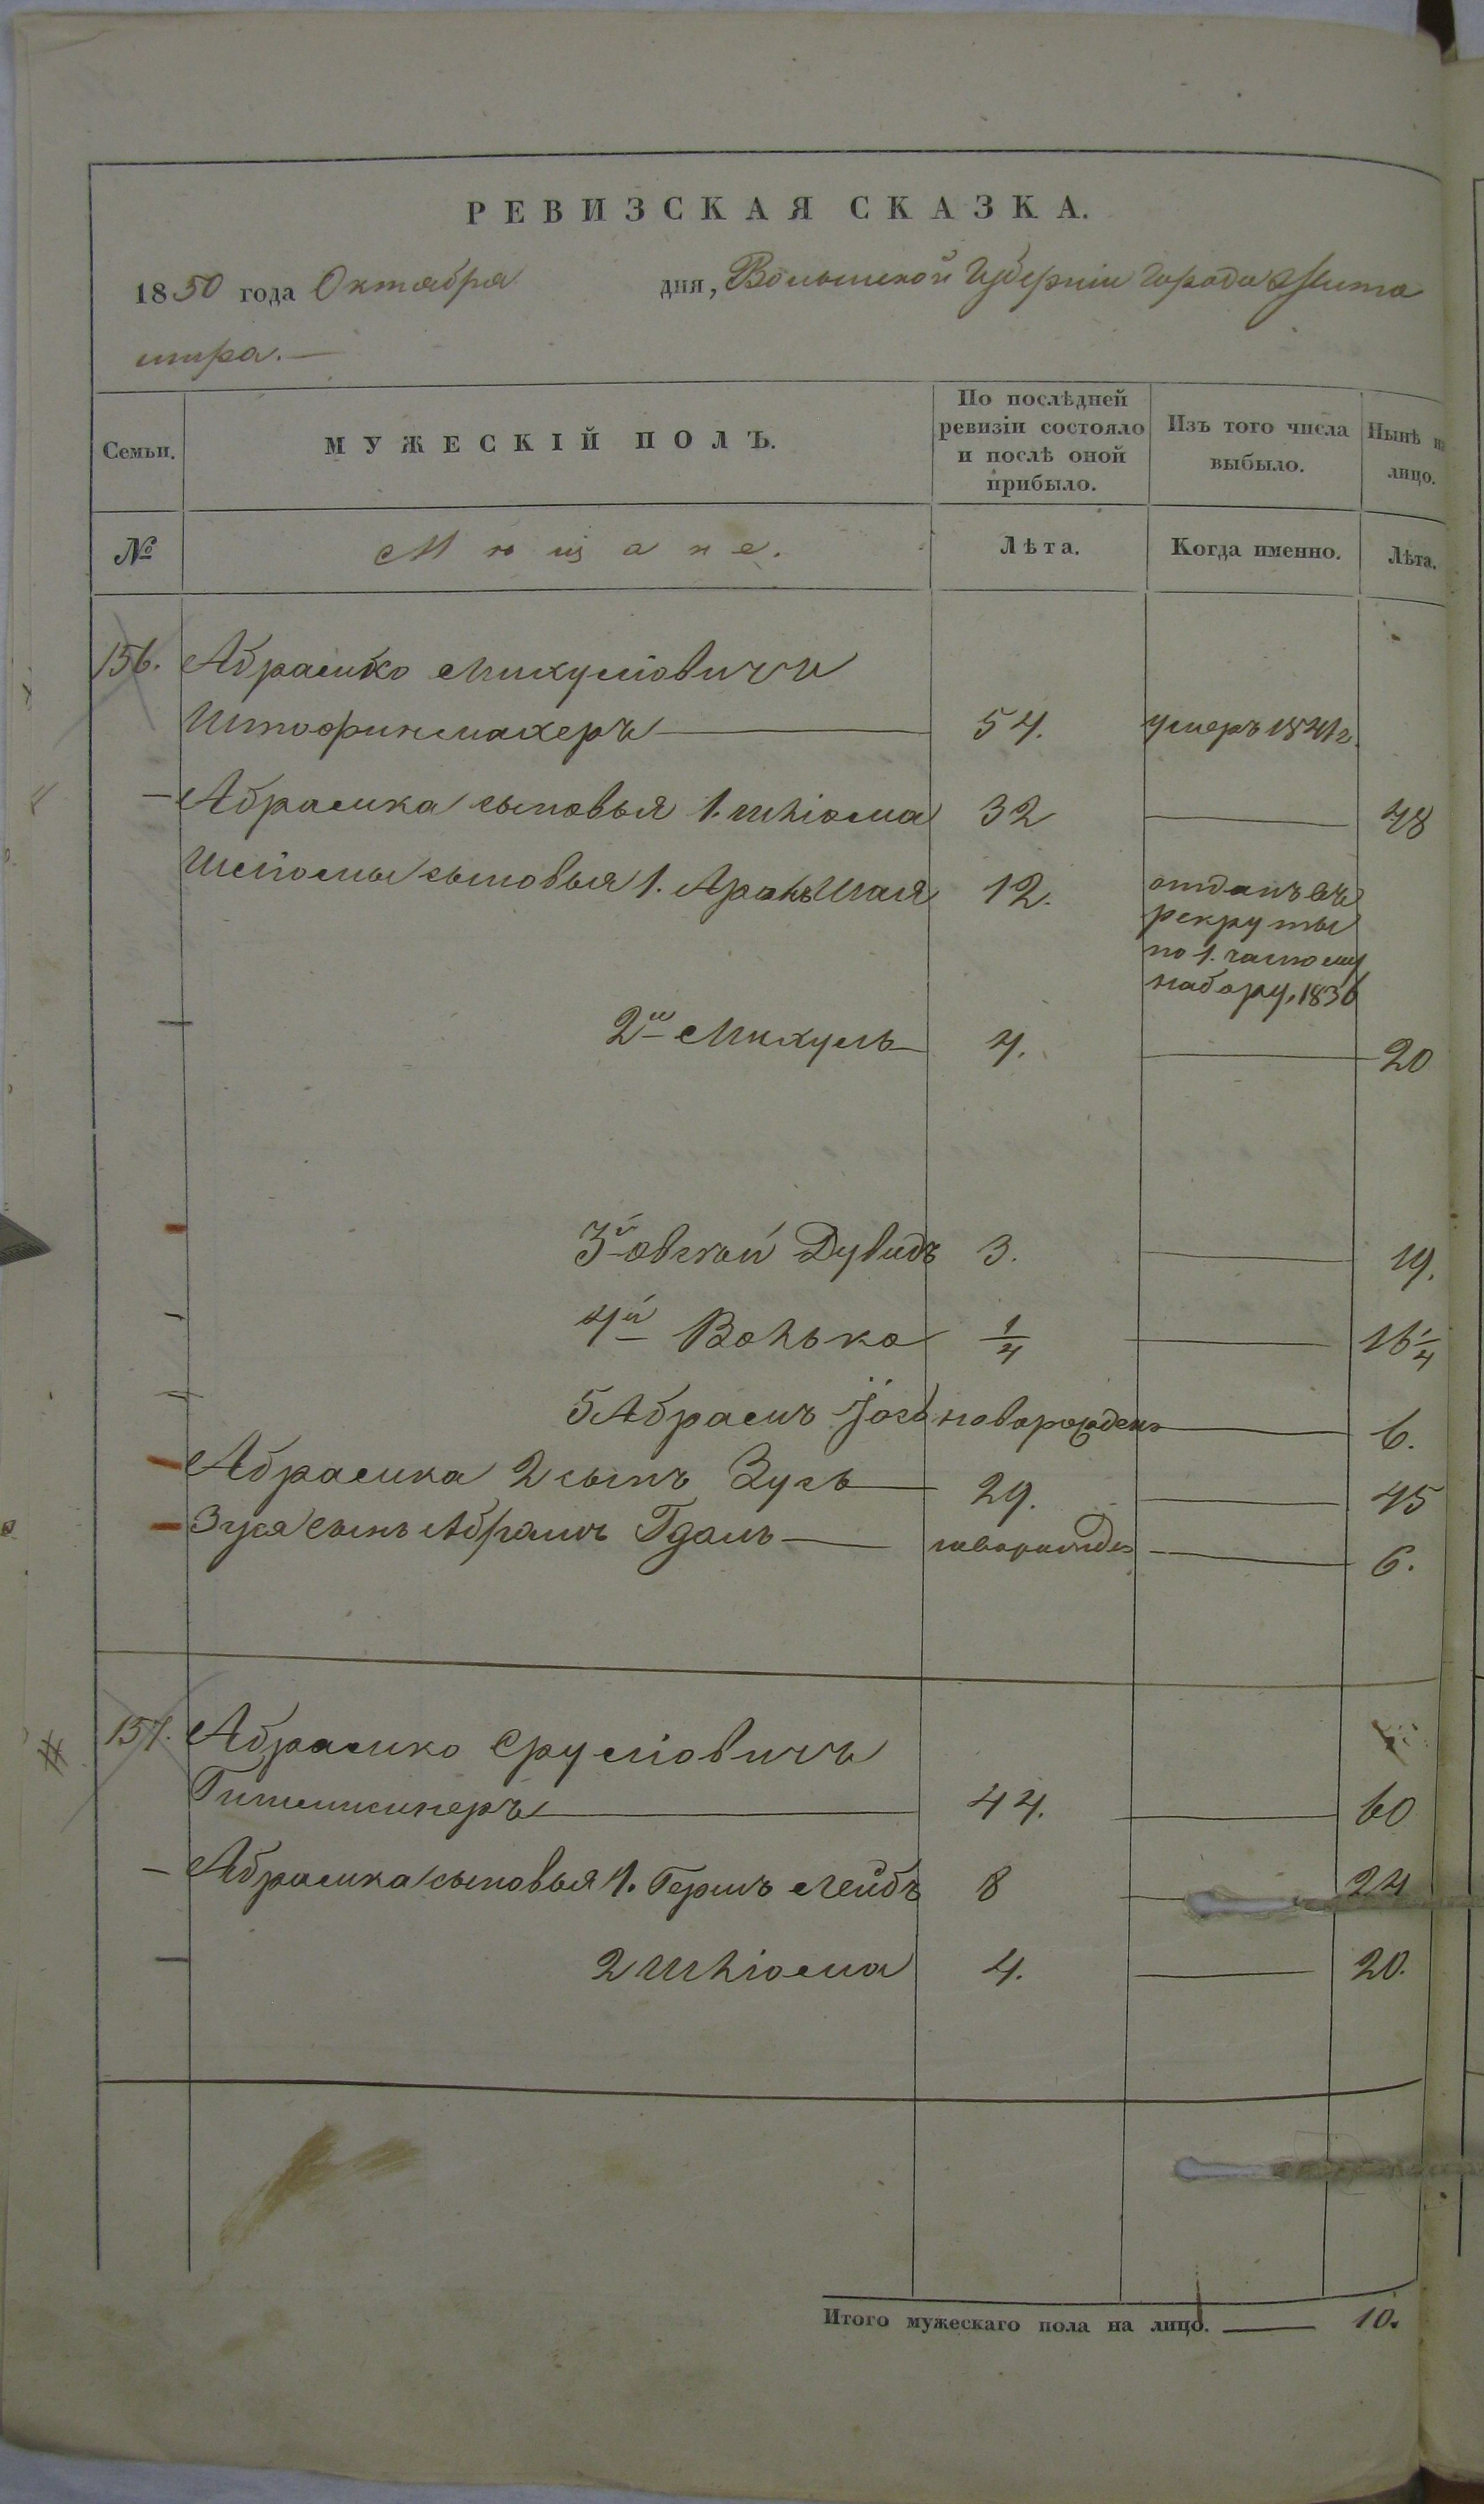 РЕВИЗСКАЯ СКАЗКА.
1850 года Октября дня, Волынской Губерніи Города Жито
мира.—
Семьи. МУЖЕСКІЙ ПОЛЪ. По послѣдней ревизіи состояло и послѣ оной прибыло. Изъ того числа выбыло. Нынѣ на лицо.
№ Мѣщане. Лѣта. Когда именно. Лѣта.
156. Абрамко Михуліовичъ
54. умеръ 1841 г.
Абрамка сыновья 1. Шліома 32 — 48
Шліомы сыновья 1. Аронъ Шая 12. отданъ въ
рекруты
по 1. частному
набору, 1836
2й Михуль 4. — 20
3й Овсѣй Дувидъ 3. — 19.
4й Волько 1/4 — 16 1/4
5 Абрамъ Іось новорожденъ — 6.
Абрамка 2 сынъ Зусь 29. — 45
Зуся сынъ Абрамъ Гдаль — новорожде — 6.
157. Абрамко Сруліовичъ
44. — 60
Абрамка сыновья 1. Гершъ Лейбъ 8 — 24
2 Шліома 4. — 20.
Итого мужескаго пола на лицо. — 10.